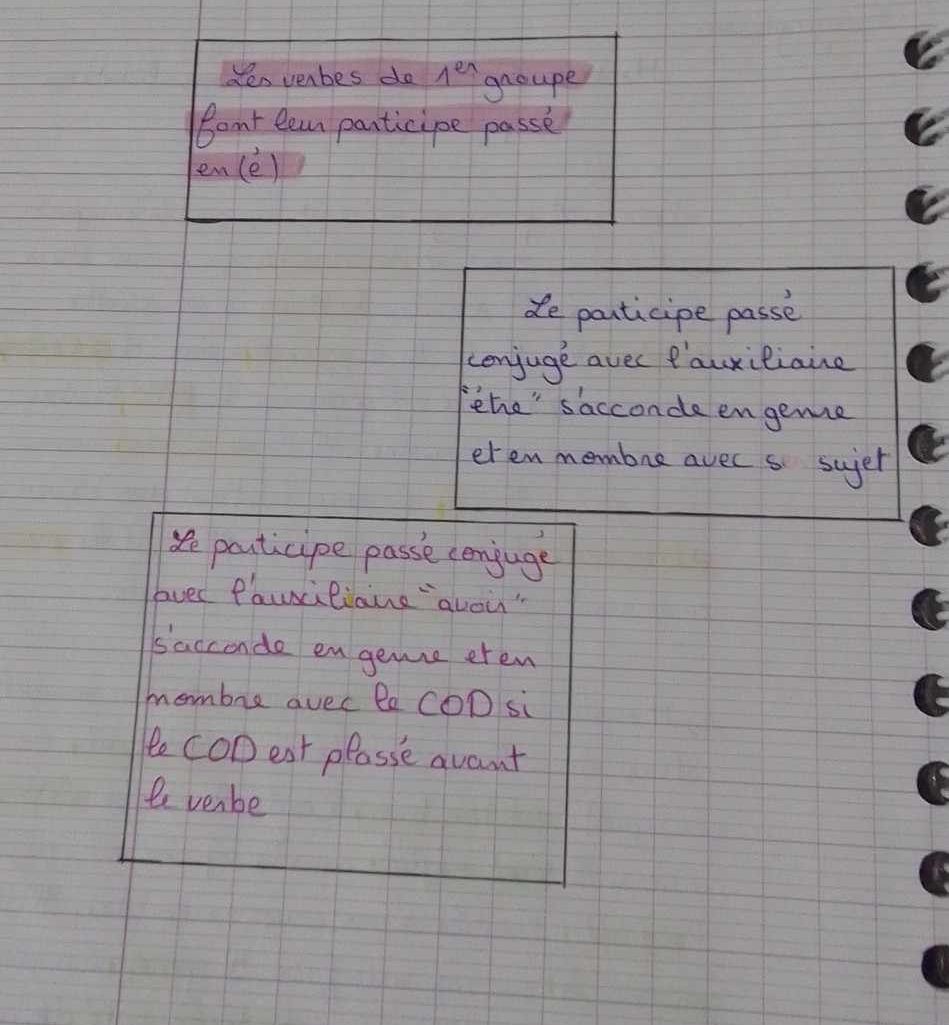 Les verbes de 1er groupe
font leur participe passé
en (é)
Le participe passé
conjugé avec l'auxiliaire
"être" s'accorde en genre
et en nombre avec s sujet
Le participe passé conjugé
avec l'auxiliaire "avoir"
s'accorde en genre et en
nombre avec le COD si
le COD est plassé avant
le verbe